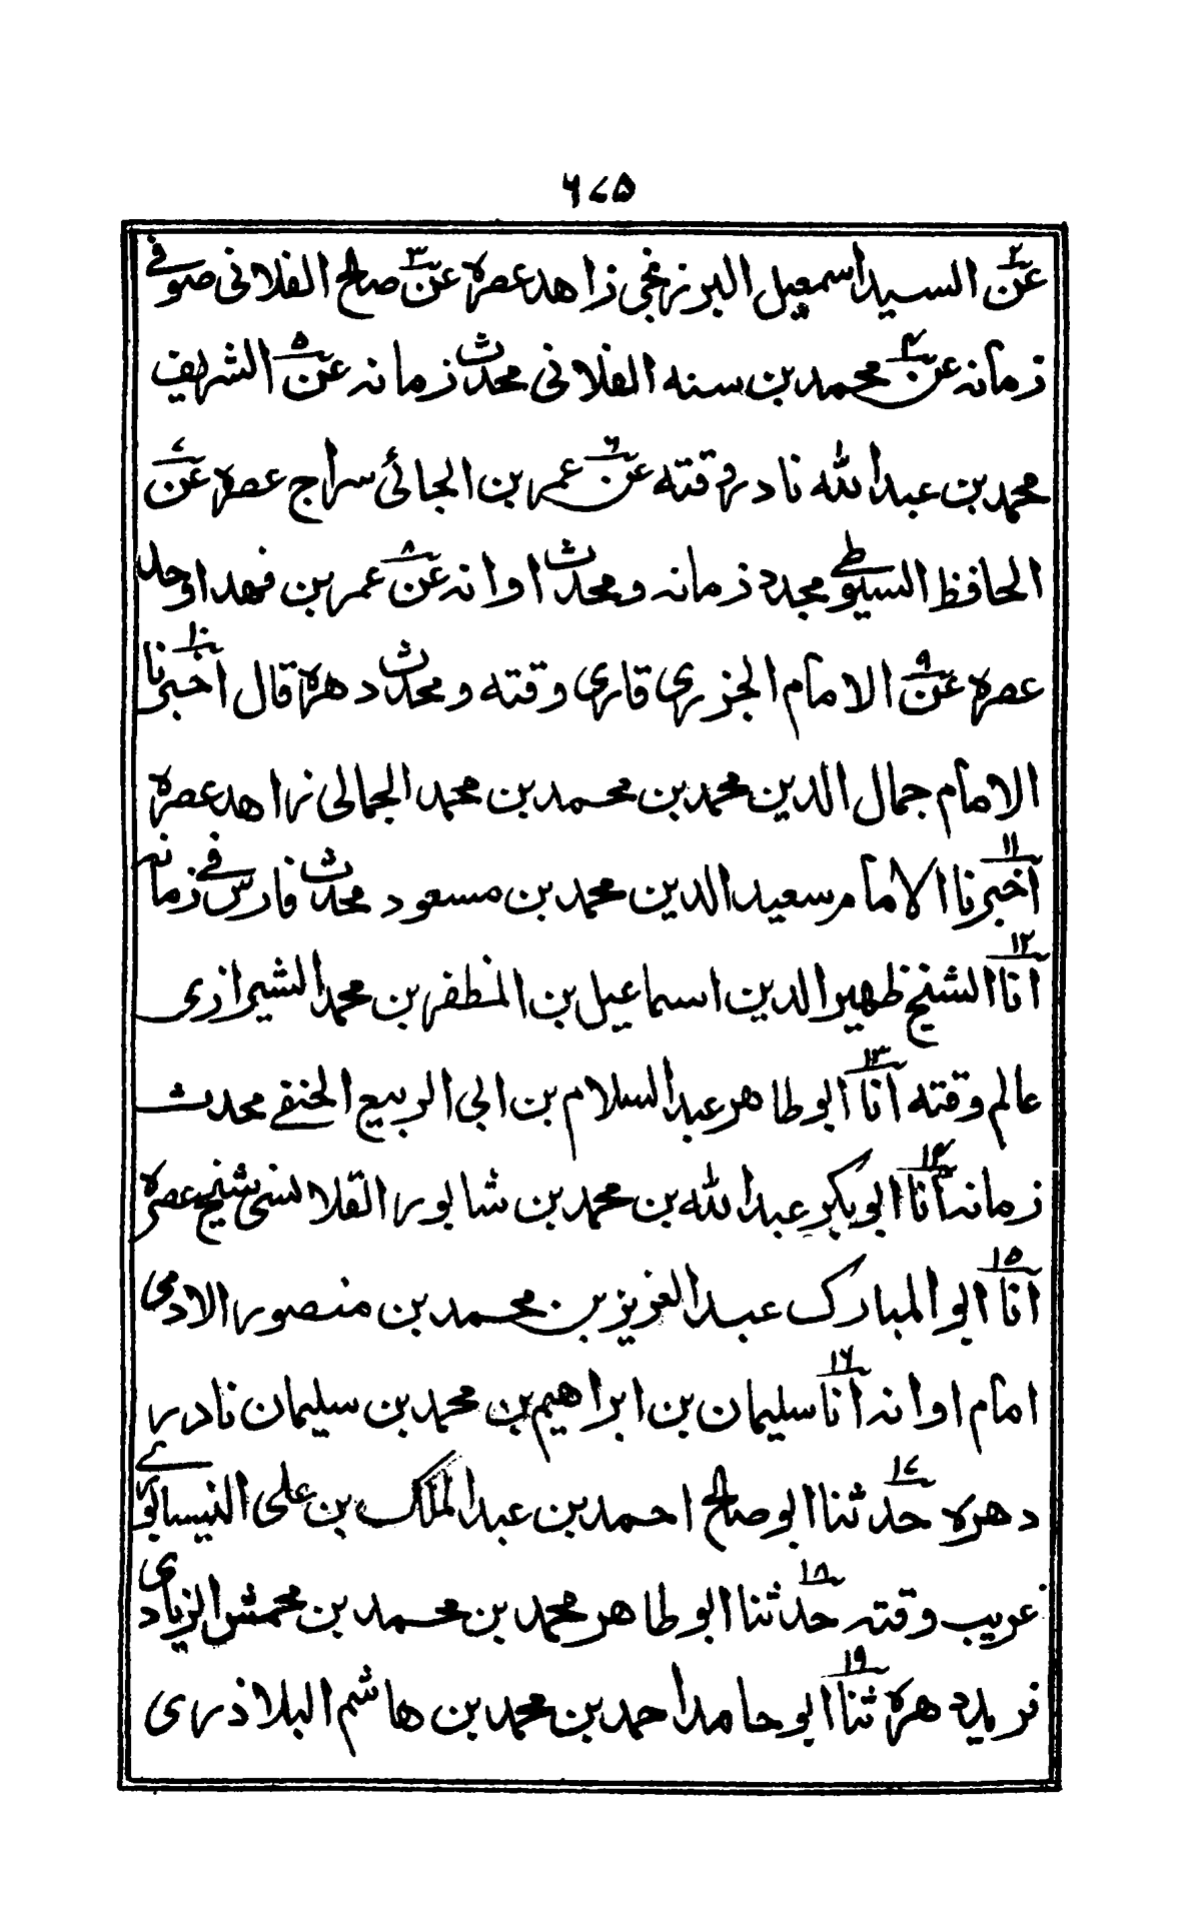 ٦٧٥
عن٢ السيد اسمعيل البرزنجي زاهد عصره عن٣ صالح الفلاني صوفي
زمانه عن٤ محمد بن سنه الفلاني محدث زمانه عن٥ الشريف
محمد بن عبد الله نادر وقته عن٦ عمر بن الجائي سراج عصره عن٧
الحافظ السيوطي مجدد زمانه ومحدث اوانه عن٨ عمر بن فهد اوحد
عصره عن٩ الامام الجزري قاري وقته ومحدث دهره قال اخبرنا١٠
الامام جمال الدين محمد بن محمد بن محمد الجمالي زاهد عصره
اخبرنا١١ الامام سعيد الدين محمد بن مسعود محدث فارس في زمانه
انا١٢ الشيخ ظهير الدين اسماعيل بن المظفر بن محمد الشيرازي
عالم وقته انا١٣ ابو طاهر عبد السلام بن ابي الربيع الحنفي محدث
زمانه انا١٤ ابو بكر عبد الله بن محمد بن شابور القلانسي شيخ عصره
انا١٥ ابو المبارك عبد العزيز بن محمد بن منصور الادمي
امام اوانه انا١٦ سليمان بن ابراهيم بن محمد بن سليمان نادر
دهره حدثنا١٧ ابو صالح احمد بن عبد الملك بن علي النيسابوري
غريب وقته حدثنا١٨ ابو طاهر محمد بن محمد بن محمش الزيادي
فريد دهره ثنا١٩ ابو حامد احمد بن محمد بن هاشم البلاذري